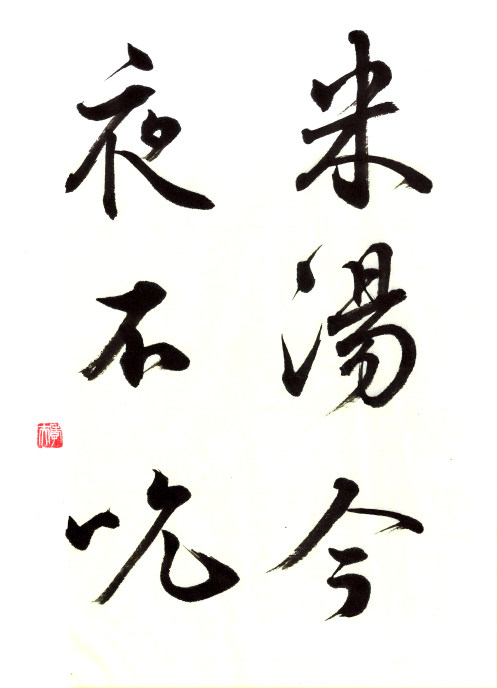 米湯今
夜不吃